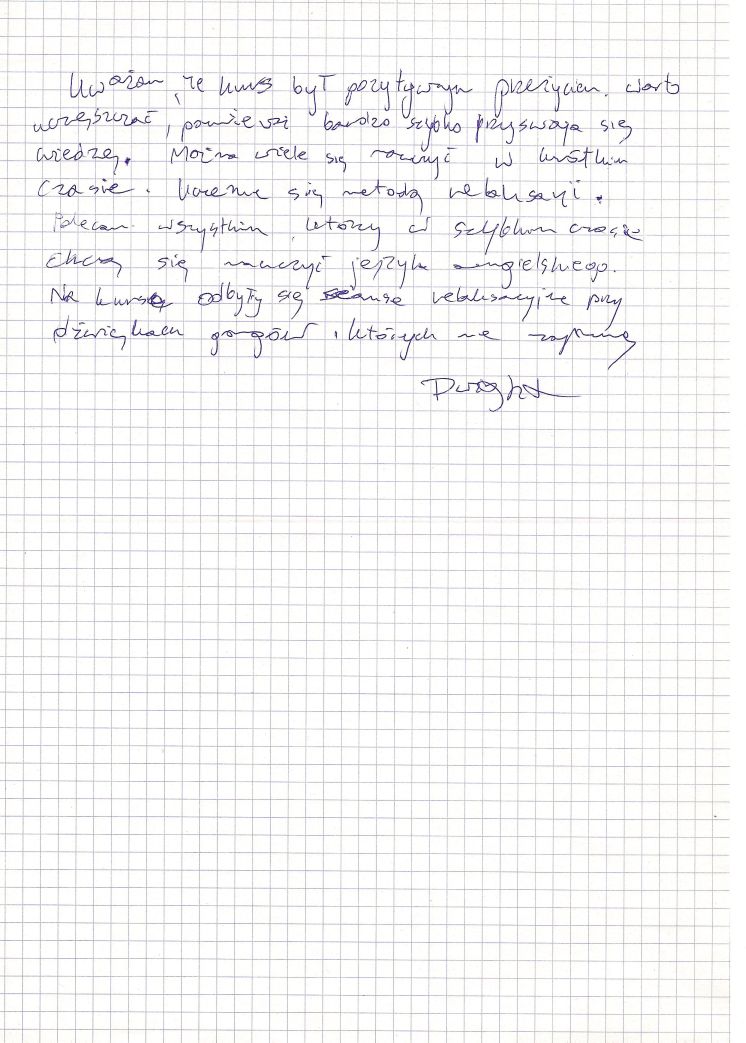 Uważam, że kurs był pozytywnym przeżyciem. Warto
uczęszczać, ponieważ bardzo szybko przyswaja się
wiedzę. Można wiele się nauczyć w krótkim
czasie. Uczenie się metodą relaksacji.
Polecam wszystkim, którzy w szybkim czasie
chcą się nauczyć języka angielskiego.
Na kursie odbyły się seanse relaksacyjne przy
dźwiękach gongów, których nie zapomnę